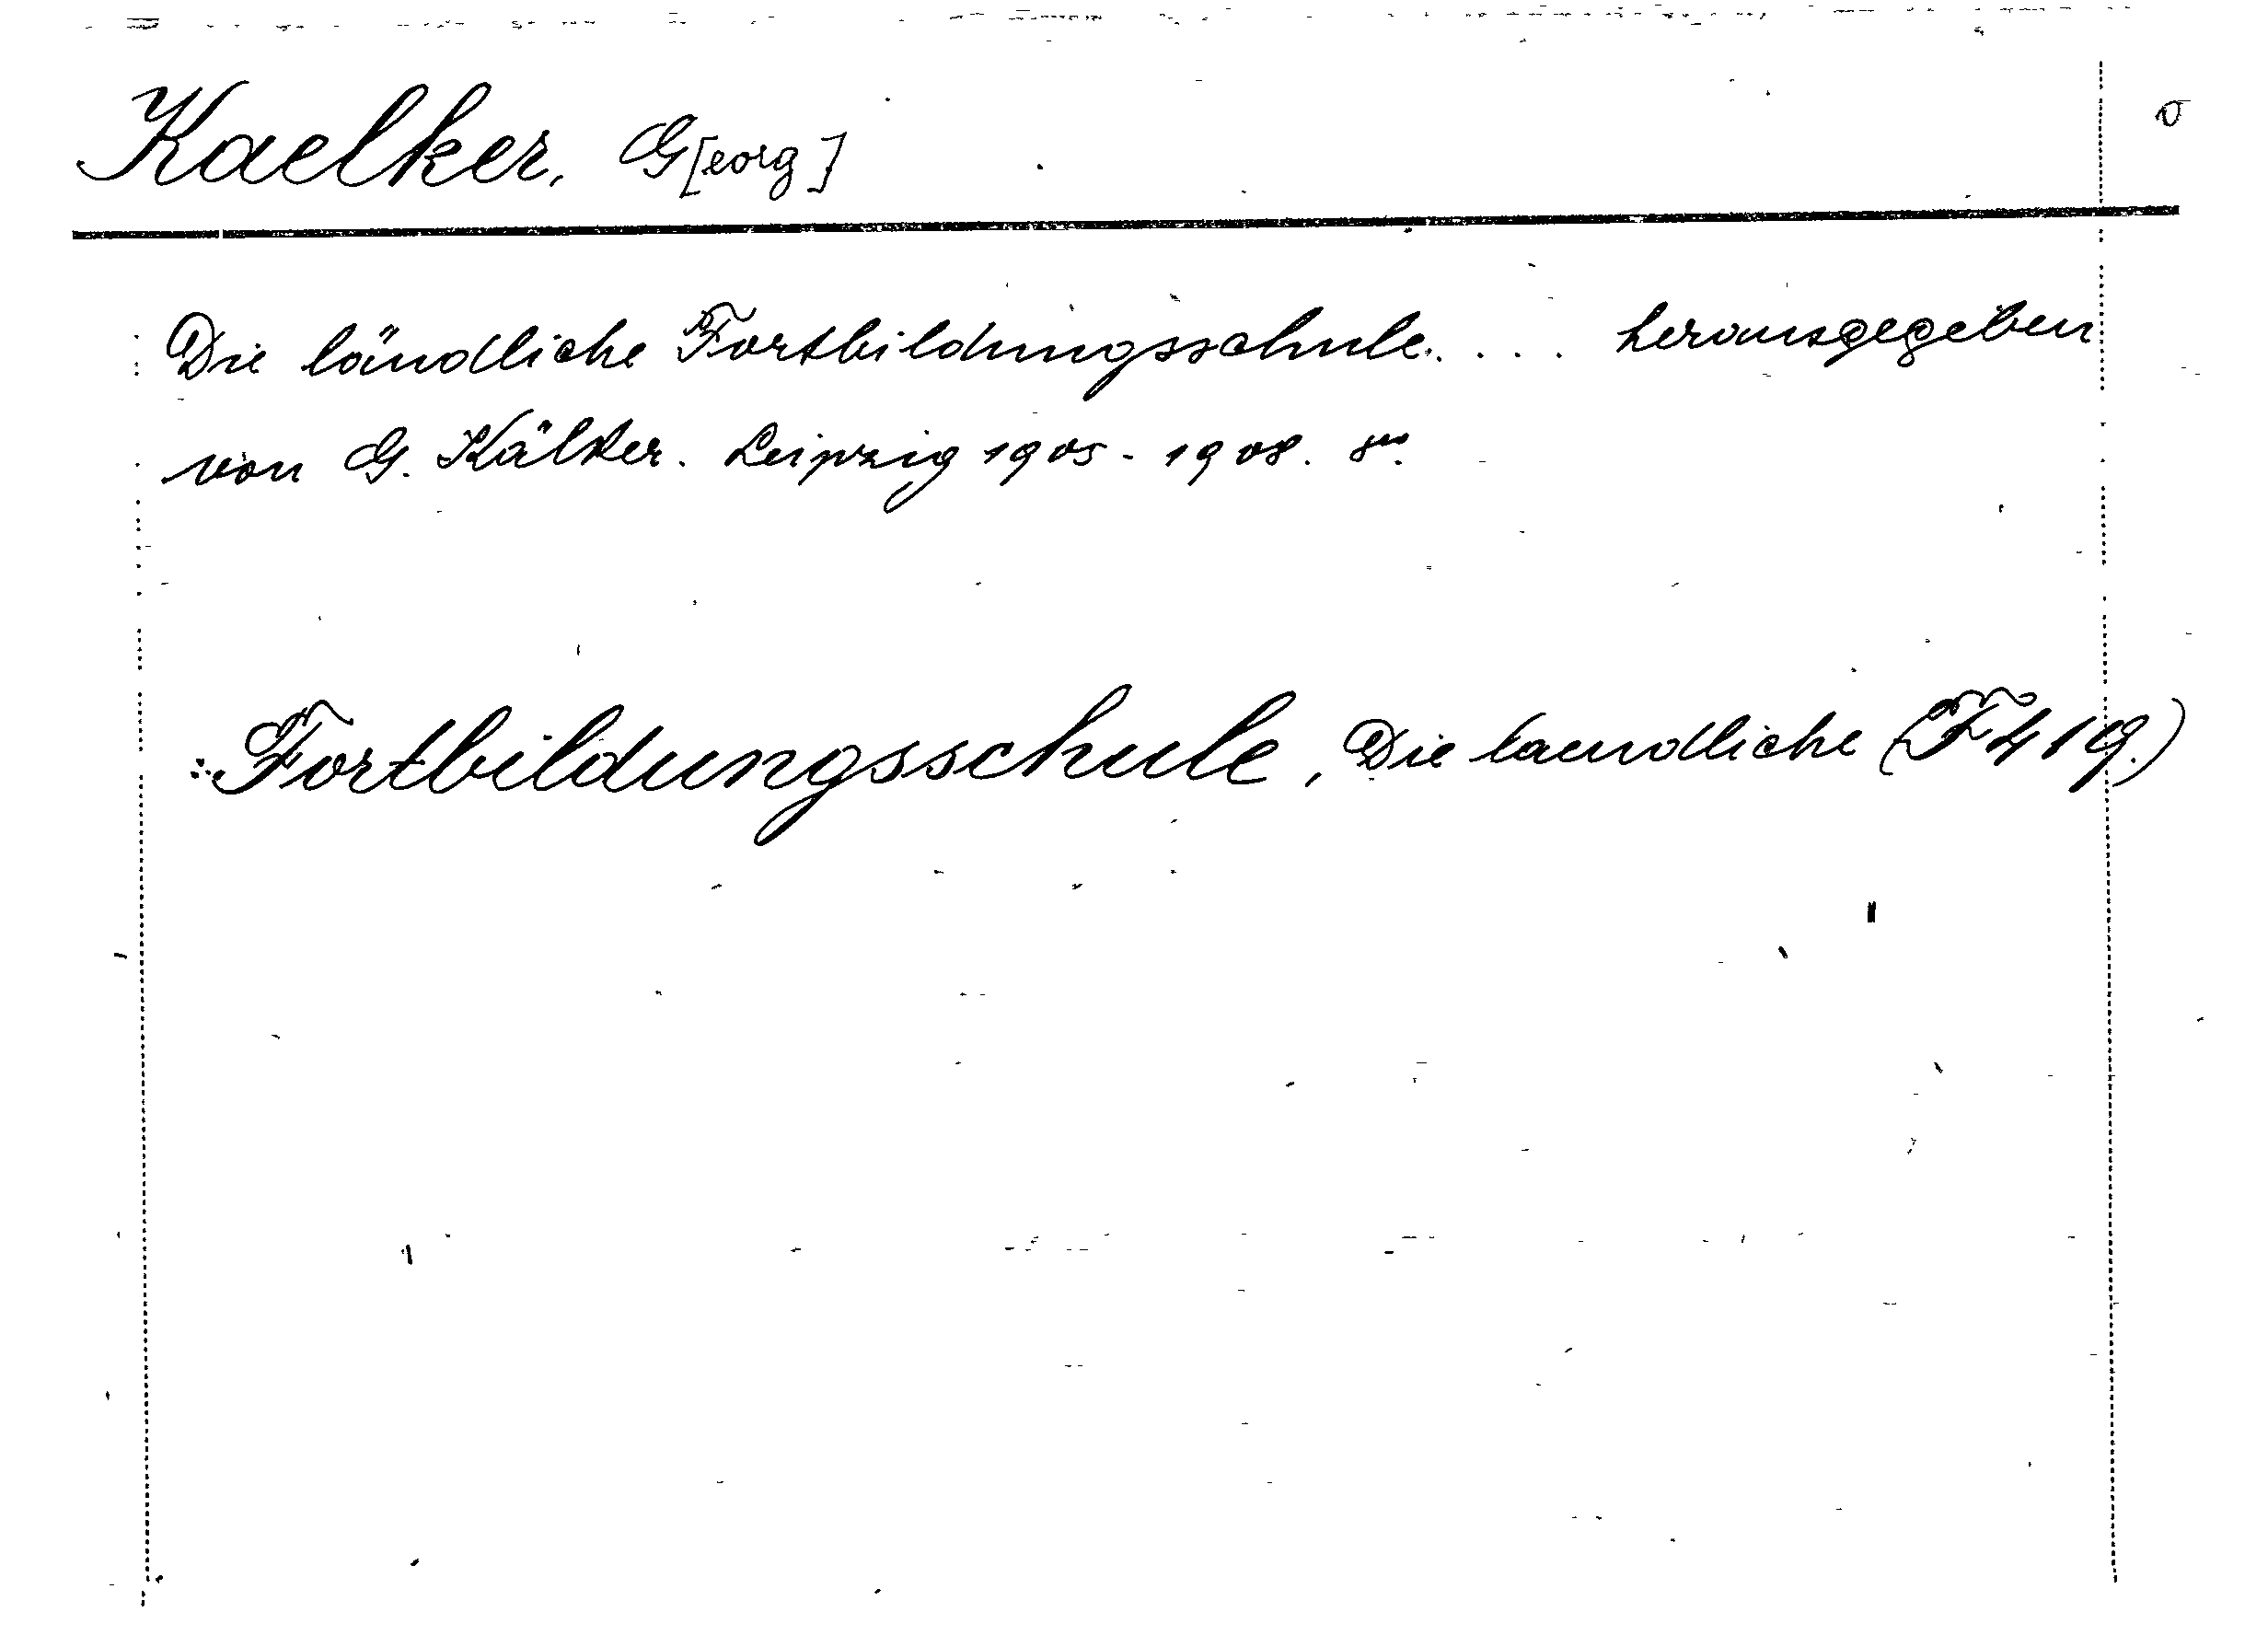 Kaelker, G[eorg]
Die ländliche Fortbildungsschule.... herausgegeben
von G. Kälker. Leipzig 1905-1908. 8°.
:. Fortbildungsschule, Die laendliche (F 419.)